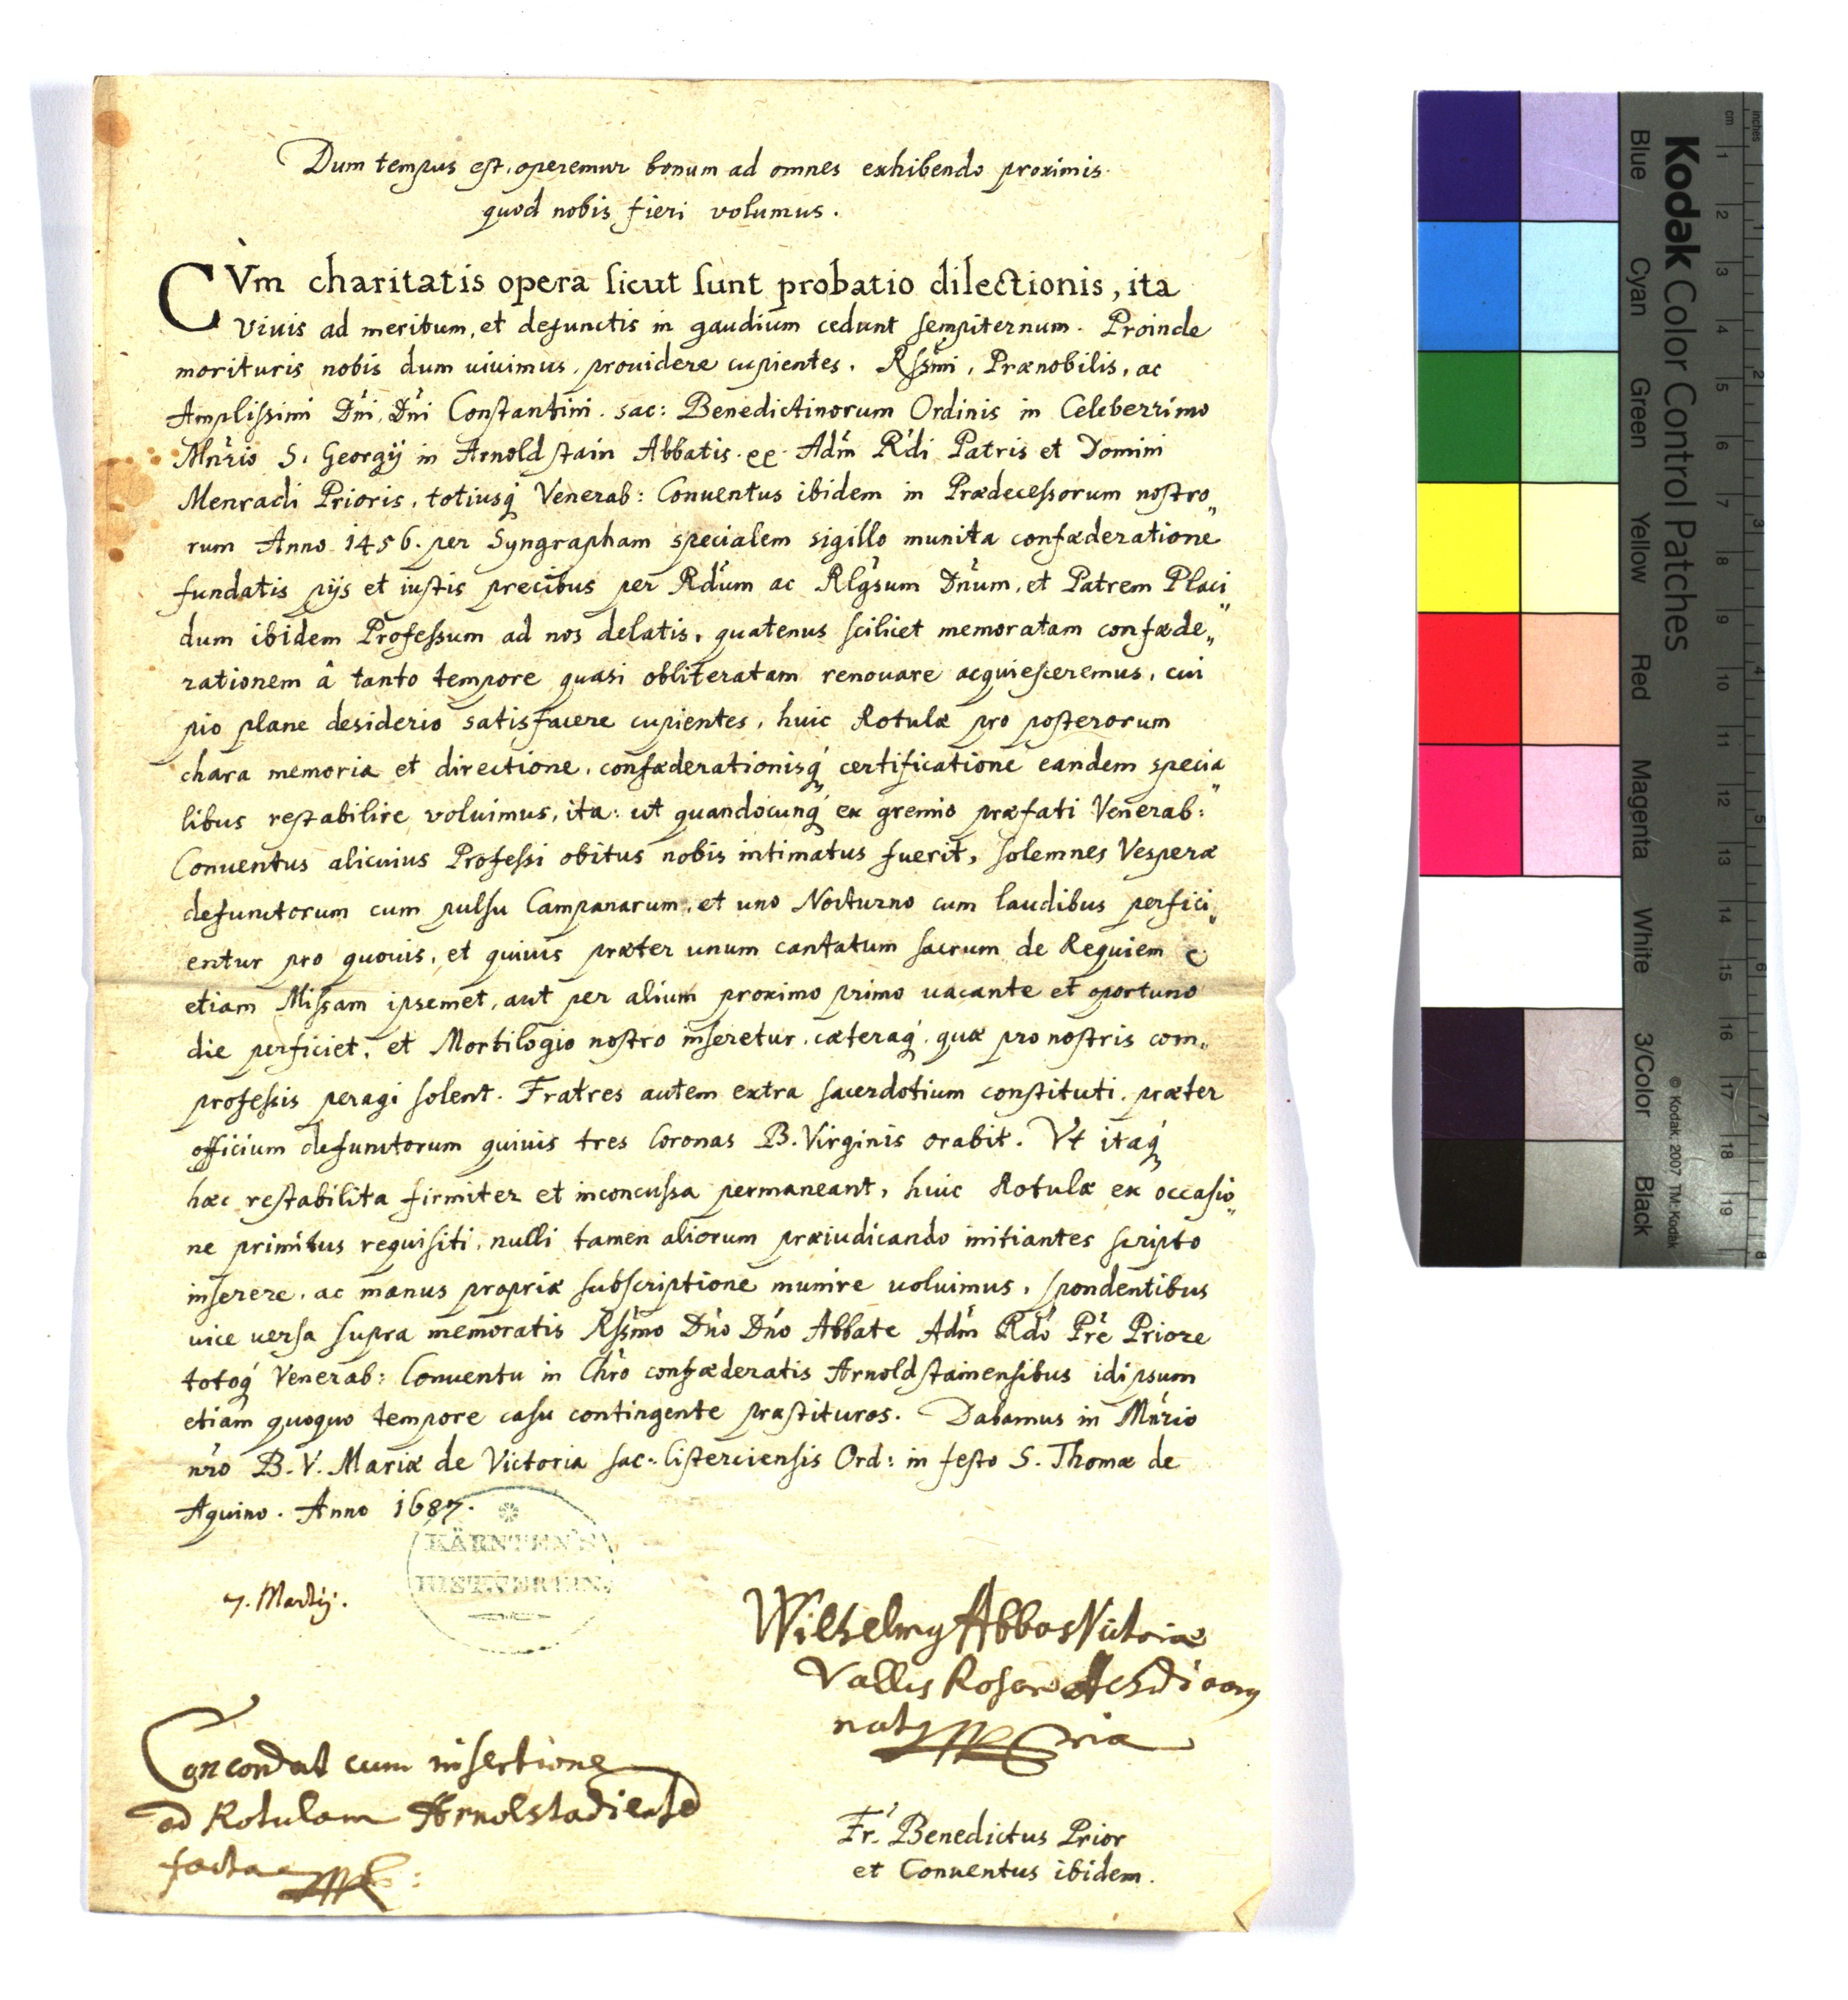 Dum tempus est, operemur bonum ad omnes exhibendo proximis
quod nobis fieri volumus.
CVm charitatis opera sicut sunt probatio dilectionis, ita
viuis ad meritum, et defunctis in gaudium cedunt sempiternum. Proinde
morituris nobis dum uiuimus, prouidere cupientes. Rssm̃i, Prænobilis, ac
Amplissimi Dñi, Dñi Constantini. sac: Benedictinorum Ordinis in Celeberrimo
Mñrio S. Georgÿ in Arnoldstain Abbatis. ec. Adm̃ R̃di Patris et Domini
Menradi Prioris, totiusq́ Venerab: Conuentus ibidem in Prædecessorum nostro„
rum Anno 1456. per Syngrapham specialem sigillo munita confæderatione
fundatis pijs et iustis precibus per Rdum ac Rlgsum Dñum, et Patrem Placi„
dum ibidem Professum ad nos delatis, quatenus scilicet memoratam confæde„
rationem â tanto tempore quasi obliteratam renouare acquiesceremus, cui
pio plane desiderio satisfacere cupientes, huic Rotulæ pro posterorum
chara memoria et directione, confæderationisq́ certificatione eandem specia„
libus restabilire voluimus, ita: ut quandocunq́ ex gremio præfati Venerab:
Conuentus alicuius Professi obitus nobis intimatus fuerit, solemnes Vesperæ
defunctorum cum pulsu Campanarum, et uno Nocturno cum laudibus perfici„
entur pro quouis, et quiuis præter unum cantatum sacrum de Requiem
etiam Missam ipsemet, aut per alium proximo primo uacante et oportuno
die perficiet, et Mortilogio nostro inseretur, cæteraq́, quæ pro nostris com„
professis peragi solent. Fratres autem extra sacerdotium constituti, præter
officium defunctorum quiuis tres Coronas B. Virginis orabit. Vt itaq́
hæc restabilita firmiter et inconcussa permaneant, huic Rotulæ ex occasio„
ne primitus requisiti, nulli tamen aliorum præiudicando initiantes scripto
inserere, ac manus propriæ subscriptione munire uoluimus, spondentibus
uice uersa supra memoratis Rssm̃o Dño Dño Abbate Adm̃ Rdo Prẽ Priore
totoq́ Venerab: Conuentu in Chr̃o confæderatis Arnoldstainensibus idipsum
etiam quoquo tempore casu contingente præstituros. Dabamus in Mñrio
nr̃o B. V. Mariæ de Victoria sac: Cisterciensis Ord: in festo S. Thomæ de
Aquino. Anno 1687.
KÄRNTEN'S
HIST. VEREIN.
7. Martij.
Wilhelmg Abbas Victoriæ
Vallis Rosar
Concordat cum insertione
ad Rotulam Arnolstadiensē
facta
Fr. Benedictus Prior
et Conuentus ibidem.
Kodak Color Control Patches
Blue Cyan Green Yellow Red Magenta White 3/Color Black
© Kodak, 2007 TM: Kodak
cm 1 2 3 4 5 6 7 8 9 10 11 12 13 14 15 16 17 18 19
inches 1 2 3 4 5 6 7 8